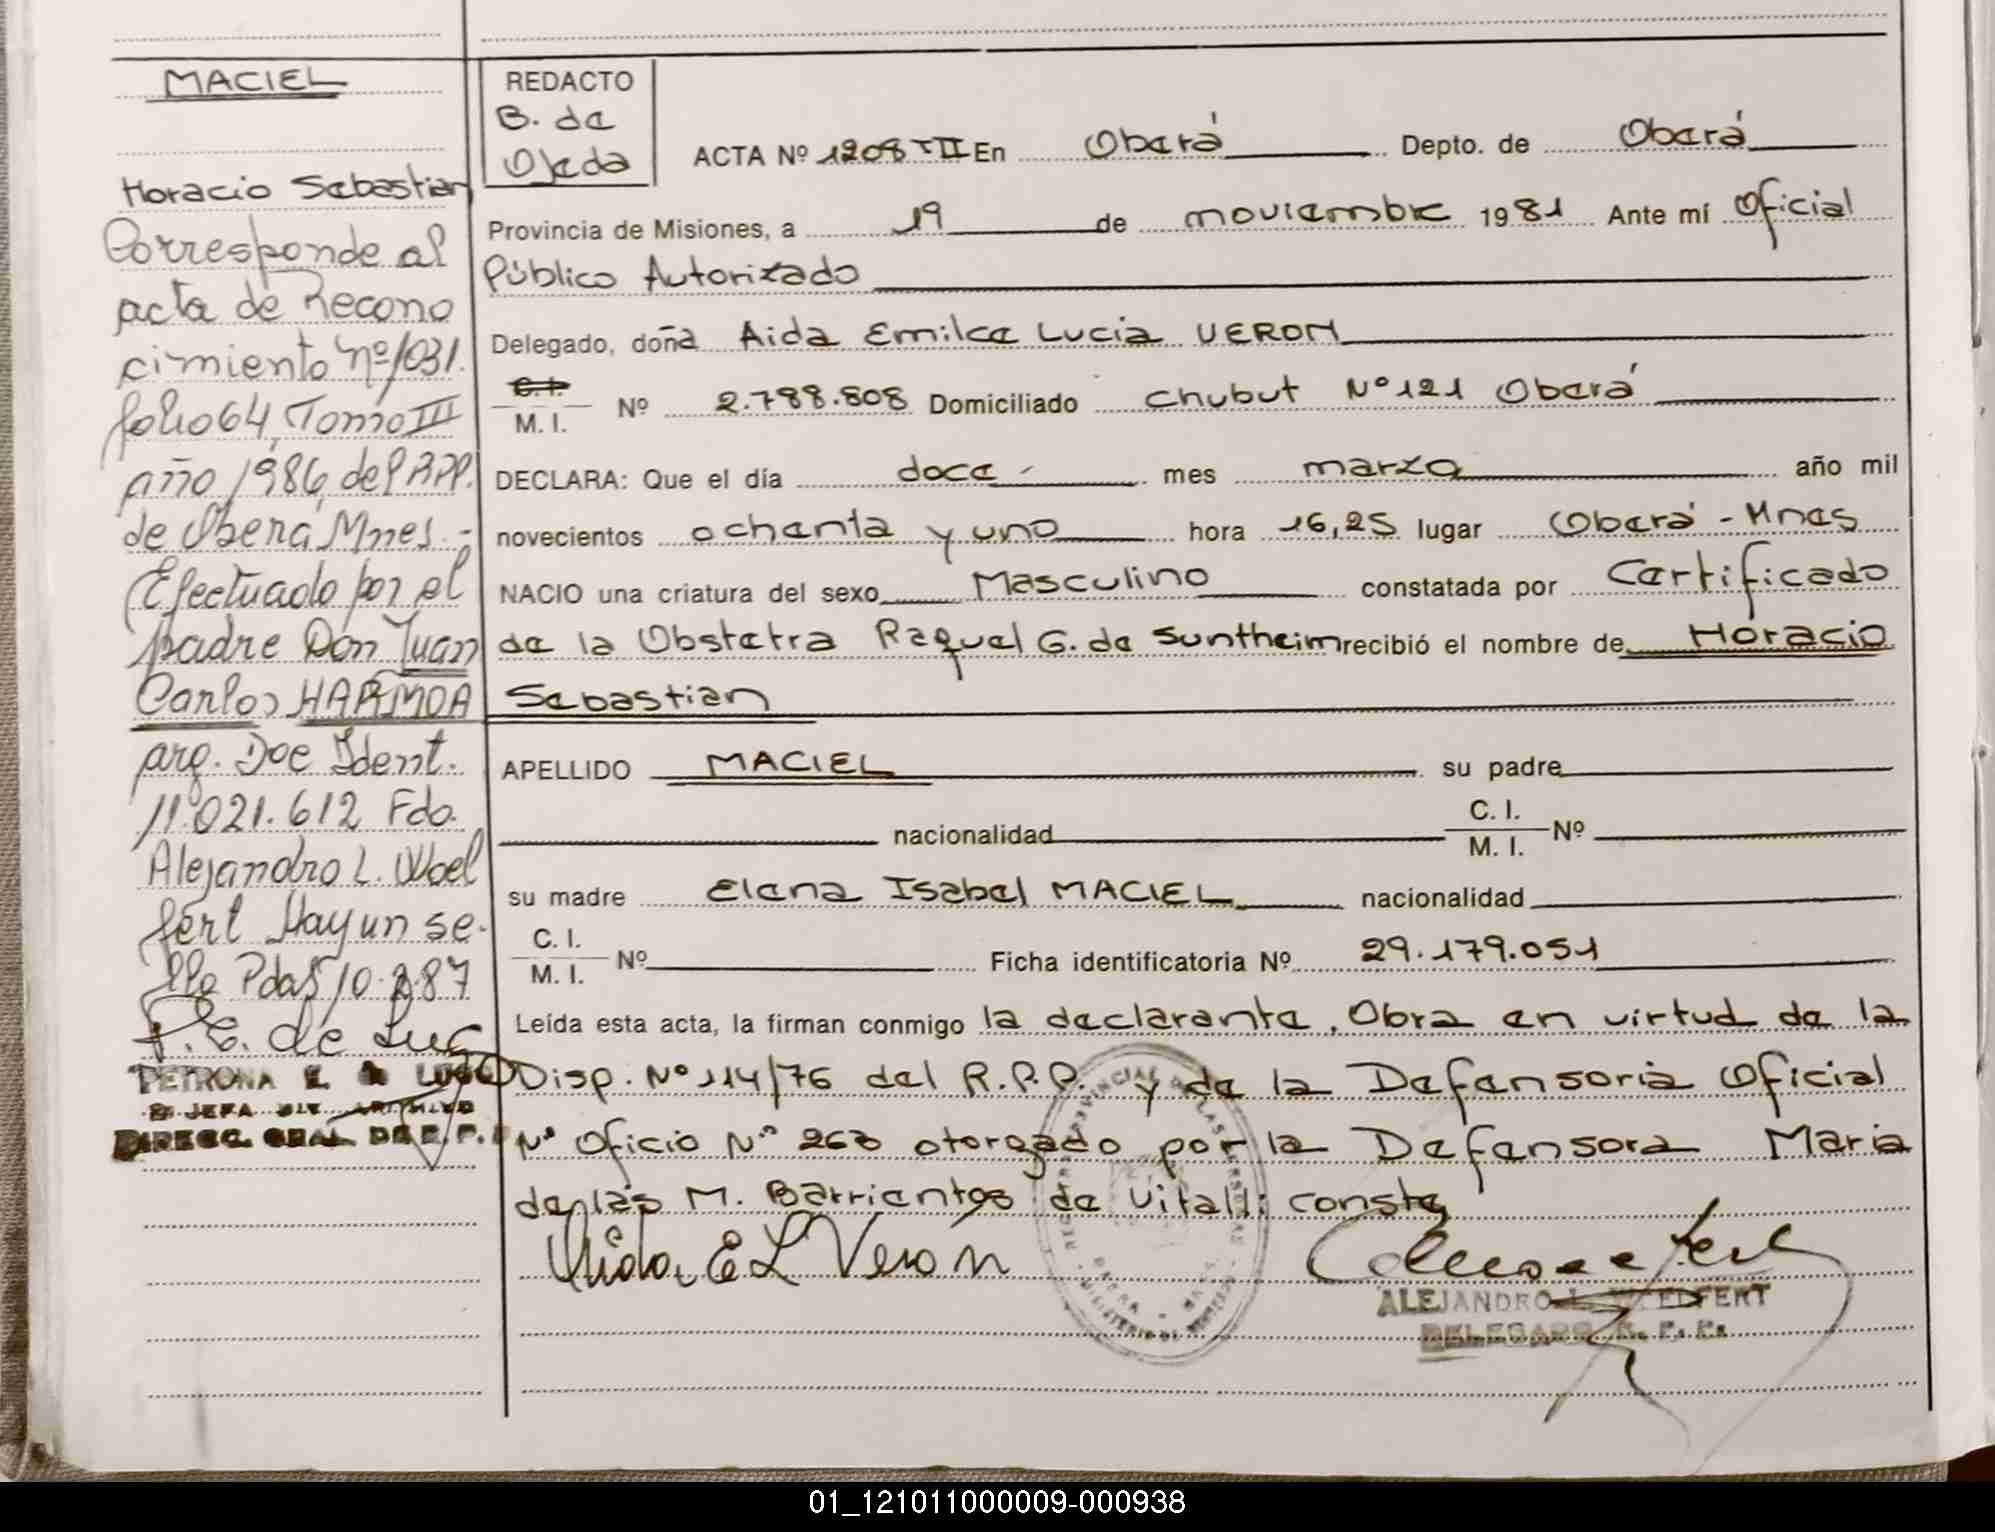 MACIEL
Horacio Sebastian
Corresponde al
acta de Recono
cimiento nº 1031.
folio 64, Tomo III
año 1986, del RPP.
de Oberá, Mnes.-
Efectuado por el
padre Don Juan
Carlos HARMOA
arg. Doc Ident.
11.021.612 Fdo.
Alejandro L. Woel
fert Hay un se-
llo Pdas 10.2.87
P.E. de Lugo
PETRONA E. LUGO
DIRECC. GRAL DE R. P. P.
REDACTO
B. de
Ojeda
ACTA Nº 1208 TII En Oberá Depto. de Oberá
Provincia de Misiones, a 19 de noviembre 1981 Ante mí Oficial
Público Autorizado
Delegado, doña Aida Emilce Lucia VERON
C.I.
M. I. Nº 2.788.808 Domiciliado Chubut Nº 121 Oberá
DECLARA: Que el día doce - mes marzo año mil
novecientos ochenta y uno hora 16,25 lugar Oberá - Mnes
NACIO una criatura del sexo Masculino constatada por Certificado
de la Obstetra Raquel G. de Suntheim recibió el nombre de Horacio
Sebastian
APELLIDO MACIEL su padre
nacionalidad C. I. M. I. Nº
su madre Elena Isabel MACIEL nacionalidad
C. I. M. I. Nº Ficha identificatoria Nº 29.179.051
Leída esta acta, la firman conmigo la declarante, Obra en virtud de la
Disp. Nº 114/76 del R.P.P. y de la Defensoria Oficial
Nº Oficio Nº 263 otorgado por la Defensora Maria
de las M. Barrientos de Vitalli conste
Aida E L Verón
ALEJANDRO L. WOELFERT
DELEGADO R. P. P.
01_121011000009-000938